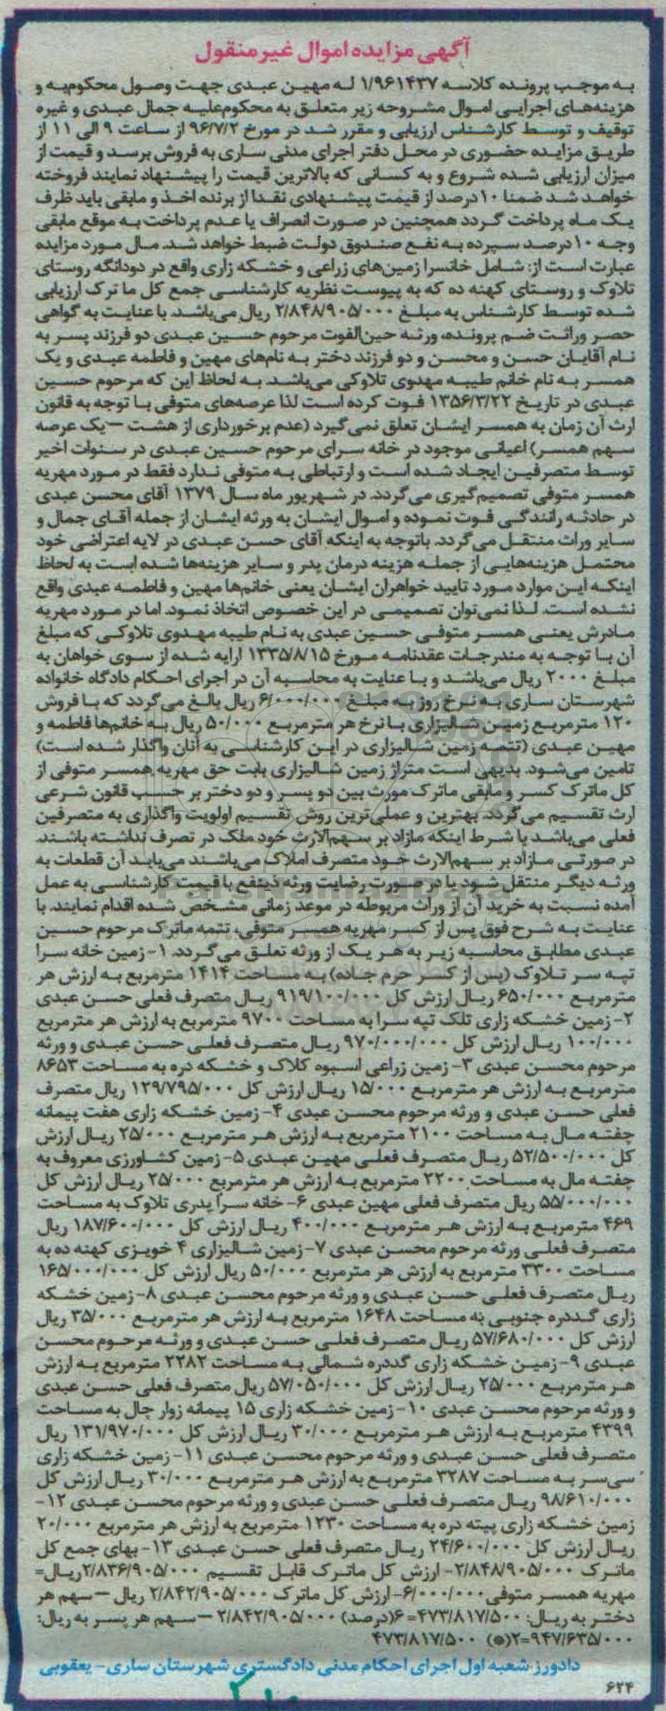 آگهی مزایده اموال غیرمنقول
به موجب پرونده کلاسه ۱/۹۶۱۴۳۷ له مهین عبدی جهت وصول محکوم‌به و
هزینه‌های اجرایی اموال مشروحه زیر متعلق به محکوم‌علیه جمال عبدی و غیره
توقیف و توسط کارشناس ارزیابی و مقرر شد در مورخ ۹۶/۷/۲ از ساعت ۹ الی ۱۱ از
طریق مزایده حضوری در محل دفتر اجرای مدنی ساری به فروش برسد و قیمت از
میزان ارزیابی شده شروع و به کسانی که بالاترین قیمت را پیشنهاد نمایند فروخته
خواهد شد ضمنا ۱۰درصد از قیمت پیشنهادی نقدا از برنده اخذ و مابقی باید ظرف
یک ماه پرداخت گردد همچنین در صورت انصراف یا عدم پرداخت به موقع مابقی
وجه ۱۰درصد سپرده به نفع صندوق دولت ضبط خواهد شد. مال مورد مزایده
عبارت است از: شامل خانسرا زمین‌های زراعی و خشکه زاری واقع در دودانگه روستای
تلاوک و روستای کهنه ده که به پیوست نظریه کارشناسی جمع کل ما ترک ارزیابی
شده توسط کارشناس به مبلغ ۲/۸۴۸/۹۰۵/۰۰۰ ریال می‌باشد. با عنایت به گواهی
حصر وراثت ضم پرونده، ورثه حین‌الفوت مرحوم حسین عبدی دو فرزند پسر به
نام آقایان حسن و محسن و دو فرزند دختر به نام‌های مهین و فاطمه عبدی و یک
همسر به نام خانم طیبه مهدوی تلاوکی می‌باشد. به لحاظ این که مرحوم حسین
عبدی در تاریخ ۱۳۵۶/۳/۲۲ فوت کرده است لذا عرصه‌های متوفی با توجه به قانون
ارث آن زمان به همسر ایشان تعلق نمی‌گیرد (عدم برخورداری از هشت —یک عرصه
سهم همسر) اعیانی موجود در خانه سرای مرحوم حسین عبدی در سنوات اخیر
توسط متصرفین ایجاد شده است و ارتباطی به متوفی ندارد فقط در مورد مهریه
همسر متوفی تصمیم‌گیری می‌گردد. در شهریور ماه سال ۱۳۷۹ آقای محسن عبدی
در حادثه رانندگی فوت نموده و اموال ایشان به ورثه ایشان از جمله آقای جمال و
سایر وراث منتقل می‌گردد. باتوجه به اینکه آقای حسن عبدی در لایه اعتراضی خود
محتمل هزینه‌هایی از جمله هزینه درمان پدر و سایر هزینه‌ها شده است به لحاظ
اینکه این موارد مورد تایید خواهران ایشان یعنی خانم‌ها مهین و فاطمه عبدی واقع
نشده است. لذا نمی‌توان تصمیمی در این خصوص اتخاذ نمود. اما در مورد مهریه
مادرش یعنی همسر متوفی حسین عبدی به نام طیبه مهدوی تلاوکی که مبلغ
آن با توجه به مندرجات عقدنامه مورخ ۱۳۳۵/۸/۱۵ ارایه شده از سوی خواهان به
مبلغ ۲۰۰۰ ریال می‌باشد و با عنایت به محاسبه آن در اجرای احکام دادگاه خانواده
شهرستان ساری به نرخ روز به مبلغ ۶/۰۰۰/۰۰۰ ریال بالغ می‌گردد که با فروش
۱۲۰ مترمربع زمین شالیزاری با نرخ هر مترمربع ۵۰/۰۰۰ ریال به خانم‌ها فاطمه و
مهین عبدی (تتمه زمین شالیزاری در این کارشناسی به آنان واگذار شده است)
تامین می‌شود. بدیهی است متراژ زمین شالیزاری بابت حق مهریه همسر متوفی از
کل ماترک کسر و مابقی ماترک مورث بین دو پسر و دو دختر بر حسب قانون شرعی
ارث تقسیم می‌گردد. بهترین و عملی‌ترین روش تقسیم اولویت واگذاری به متصرفین
فعلی می‌باشد با شرط اینکه مازاد بر سهم‌الارث خود ملک در تصرف نداشته باشند.
در صورتی مازاد بر سهم‌الارث خود متصرف املاک می‌باشند می‌باید آن قطعات به
ورثه دیگر منتقل شود یا در صورت رضایت ورثه ذینفع با قیمت کارشناسی به عمل
آمده نسبت به خرید آن از وراث مربوطه در موعد زمانی مشخص شده اقدام نمایند. با
عنایت به شرح فوق پس از کسر مهریه همسر متوفی، تتمه ماترک مرحوم حسین
عبدی مطابق محاسبه زیر به هر یک از ورثه تعلق می‌گردد. ۱- زمین خانه سرا
تپه سر تلاوک (پس از کسر حرم جاده) به مساحت ۱۴۱۴ مترمربع به ارزش هر
مترمربع ۶۵۰/۰۰۰ ریال ارزش کل ۹۱۹/۱۰۰/۰۰۰ ریال متصرف فعلی حسن عبدی
۲- زمین خشکه زاری تلک تپه سرا به مساحت ۹۷۰۰ مترمربع به ارزش هر مترمربع
۱۰۰/۰۰۰ ریال ارزش کل ۹۷۰/۰۰۰/۰۰۰ ریال متصرف فعلی حسن عبدی و ورثه
مرحوم محسن عبدی ۳- زمین زراعی اسبوه کلاک و خشکه دره به مساحت ۸۶۵۳
مترمربع به ارزش هر مترمربع ۱۵/۰۰۰ ریال ارزش کل ۱۲۹/۷۹۵/۰۰۰ ریال متصرف
فعلی حسن عبدی و ورثه مرحوم محسن عبدی ۴- زمین خشکه زاری هفت پیمانه
جفته مال به مساحت ۲۱۰۰ مترمربع به ارزش هر مترمربع ۲۵/۰۰۰ ریال ارزش
کل ۵۲/۵۰۰/۰۰۰ ریال متصرف فعلی مهین عبدی ۵- زمین کشاورزی معروف به
جفته مال به مساحت ۲۲۰۰ مترمربع به ارزش هر مترمربع ۲۵/۰۰۰ ریال ارزش کل
۵۵/۰۰۰/۰۰۰ ریال متصرف فعلی مهین عبدی ۶- خانه سرا پدری تلاوک به مساحت
۴۶۹ مترمربع به ارزش هر مترمربع ۴۰۰/۰۰۰ ریال ارزش کل ۱۸۷/۶۰۰/۰۰۰ ریال
متصرف فعلی ورثه مرحوم محسن عبدی ۷- زمین شالیزاری ۴ خویزی کهنه ده به
مساحت ۳۳۰۰ مترمربع به ارزش هر مترمربع ۵۰/۰۰۰ ریال ارزش کل ۱۶۵/۰۰۰/۰۰۰
ریال متصرف فعلی حسن عبدی و ورثه مرحوم محسن عبدی ۸- زمین خشکه
زاری گددره جنوبی به مساحت ۱۶۴۸ مترمربع به ارزش هر مترمربع ۳۵/۰۰۰ ریال
ارزش کل ۵۷/۶۸۰/۰۰۰ ریال متصرف فعلی حسن عبدی و ورثه مرحوم محسن
عبدی ۹- زمین خشکه زاری گددره شمالی به مساحت ۲۲۸۲ مترمربع به ارزش
هر مترمربع ۲۵/۰۰۰ ریال ارزش کل ۵۷/۰۵۰/۰۰۰ ریال متصرف فعلی حسن عبدی
و ورثه مرحوم محسن عبدی ۱۰- زمین خشکه زاری ۱۵ پیمانه زوار چال به مساحت
۴۳۹۹ مترمربع به ارزش هر مترمربع ۳۰/۰۰۰ ریال ارزش کل ۱۳۱/۹۷۰/۰۰۰ ریال
متصرف فعلی حسن عبدی و ورثه مرحوم محسن عبدی ۱۱- زمین خشکه زاری
سی‌سر به مساحت ۳۲۸۷ مترمربع به ارزش هر مترمربع ۳۰/۰۰۰ ریال ارزش کل
۹۸/۶۱۰/۰۰۰ ریال متصرف فعلی حسن عبدی و ورثه مرحوم محسن عبدی ۱۲-
زمین خشکه زاری پیته دره به مساحت ۱۲۳۰ مترمربع به ارزش هر مترمربع ۲۰/۰۰۰
ریال ارزش کل ۲۴/۶۰۰/۰۰۰ ریال متصرف فعلی حسن عبدی ۱۳- بهای جمع کل
ماترک ۲/۸۴۸/۹۰۵/۰۰۰- ارزش کل ماترک قابل تقسیم ۲/۸۳۶/۹۰۵/۰۰۰ریال=
مهریه همسر متوفی۶/۰۰۰/۰۰۰-ارزش کل ماترک ۲/۸۴۲/۹۰۵/۰۰۰ ریال —سهم هر
دختر به ریال: ۴۷۳/۸۱۷/۵۰۰= ۶(درصد) ۲/۸۴۲/۹۰۵/۰۰۰ —سهم هر پسر به ریال:
۹۴۷/۶۳۵/۰۰۰=۲(*) ۴۷۳/۸۱۷/۵۰۰
دادورز شعبه اول اجرای احکام مدنی دادگستری شهرستان ساری- یعقوبی
۶۲۴